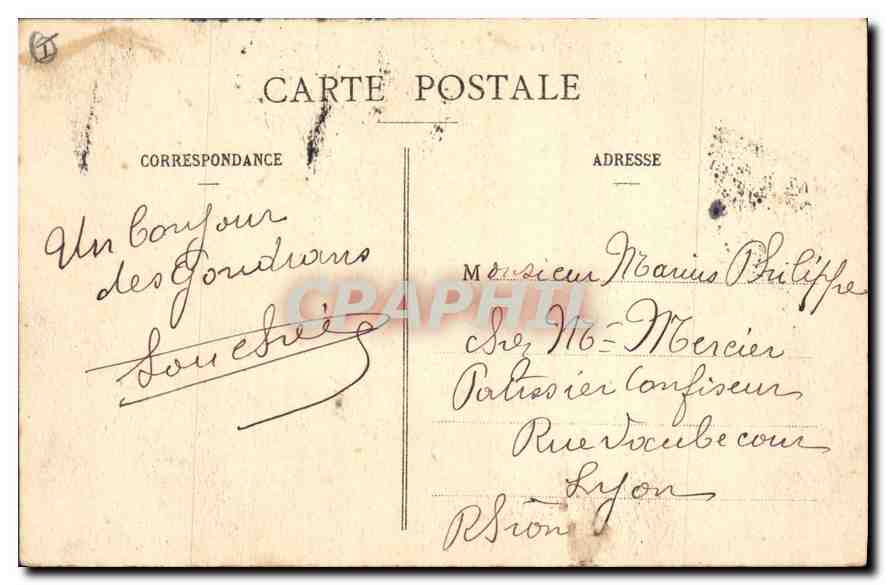 CARTE POSTALE
CORRESPONDANCE
ADRESSE
Un bonjour
des Gondrans
Souchée
Monsieur Marius Philippe
chez M= Mercier
Patissier Confiseur
Rue Vaubecour
Lyon
Rhône
CPAPHIL